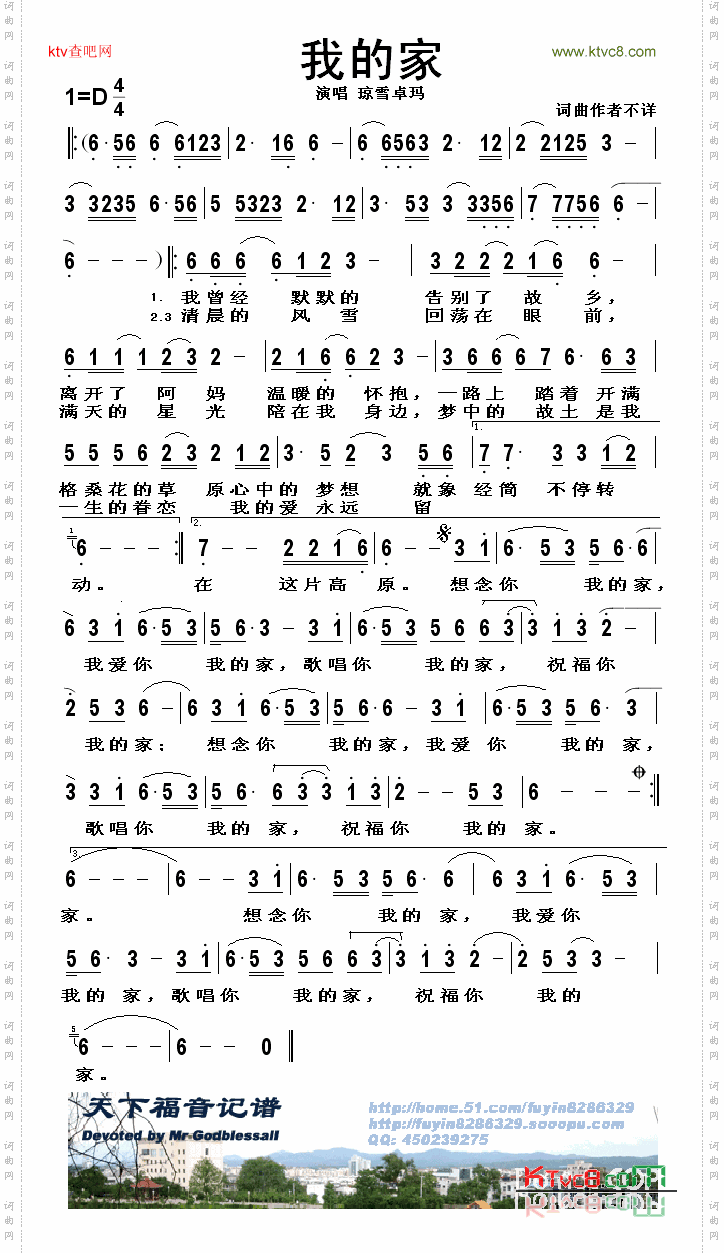 ktv查吧网
我的家
www.ktvc8.com
1=D 4/4
演唱 琼雪卓玛
词曲作者不详
‖:(6·56 6 6123 | 2· 16 6 - | 6 6563 2· 12 | 2 2125 3 - |
3 3235 6·56 | 5 5323 2·12 | 3· 53 3 3356 | 7 7756 6 - |
6 - - - )‖: 6 6 6 6 1 2 3 - | 3 2 2 2 1 6 6 - |
1. 我曾经 默默的 告别了 故 乡,
2.3 清晨的 风 雪 回荡在 眼 前,
6 1 1 1 2 3 2 - | 2 1 6 6 2 3 - | 3 6 6 6 7 6· 6 3 |
离开了 阿 妈 温暖的 怀抱, 一路上 踏着 开满
满天的 星 光 陪在我 身边, 梦中的 故土 是我
1.
5 5 5 6 2 3 2 1 2 | 3· 5 2 3 5 6 | 7 7· 3 3 1 2 |
格桑花的草 原心中的 梦想 就象 经筒 不停转
一生的眷恋 我的爱 永远 留
1 2.
6 - - - :‖ 7 - - 2 2 1 6 | 6 - - 3 1 | 6· 5 3 5 6·6
动。 在 这片高 原。 想念你 我的家,
6 3 1 6·5 3 | 5 6·3 - 3 1 | 6·5 3 5 6 6 3 | 3 1 3 2 - |
我爱你 我的家, 歌唱你 我的家, 祝福你
2 5 3 6 - | 6 3 1 6·5 3 | 5 6·6 - 3 1 | 6·5 3 5 6· 3 |
我的家; 想念你 我的家, 我爱 你 我的 家,
3 3 1 6·5 3 | 5 6· 6 3 3 1 3 | 2 - - 5 3 | 6 - - - :‖
歌唱你 我的 家, 祝福你 我的 家。
3.
6 - - - | 6 - - 3 1 | 6· 5 3 5 6·6 - | 6 3 1 6· 5 3 |
家。 想念你 我的 家, 我爱你
5 6· 3 - 3 1 | 6·5 3 5 6 6 3 | 3 1 3 2 - | 2 5 3 3 - |
我的 家, 歌唱你 我的家, 祝福你 我的
5
6 - - - | 6 - - 0 ‖
家。
天下福音记谱
Devoted by Mr Godblessall
http://home.51.com/fuyin8286329
http://fuyin8286329.sooopu.com
QQ: 450239275
KTvc8.com